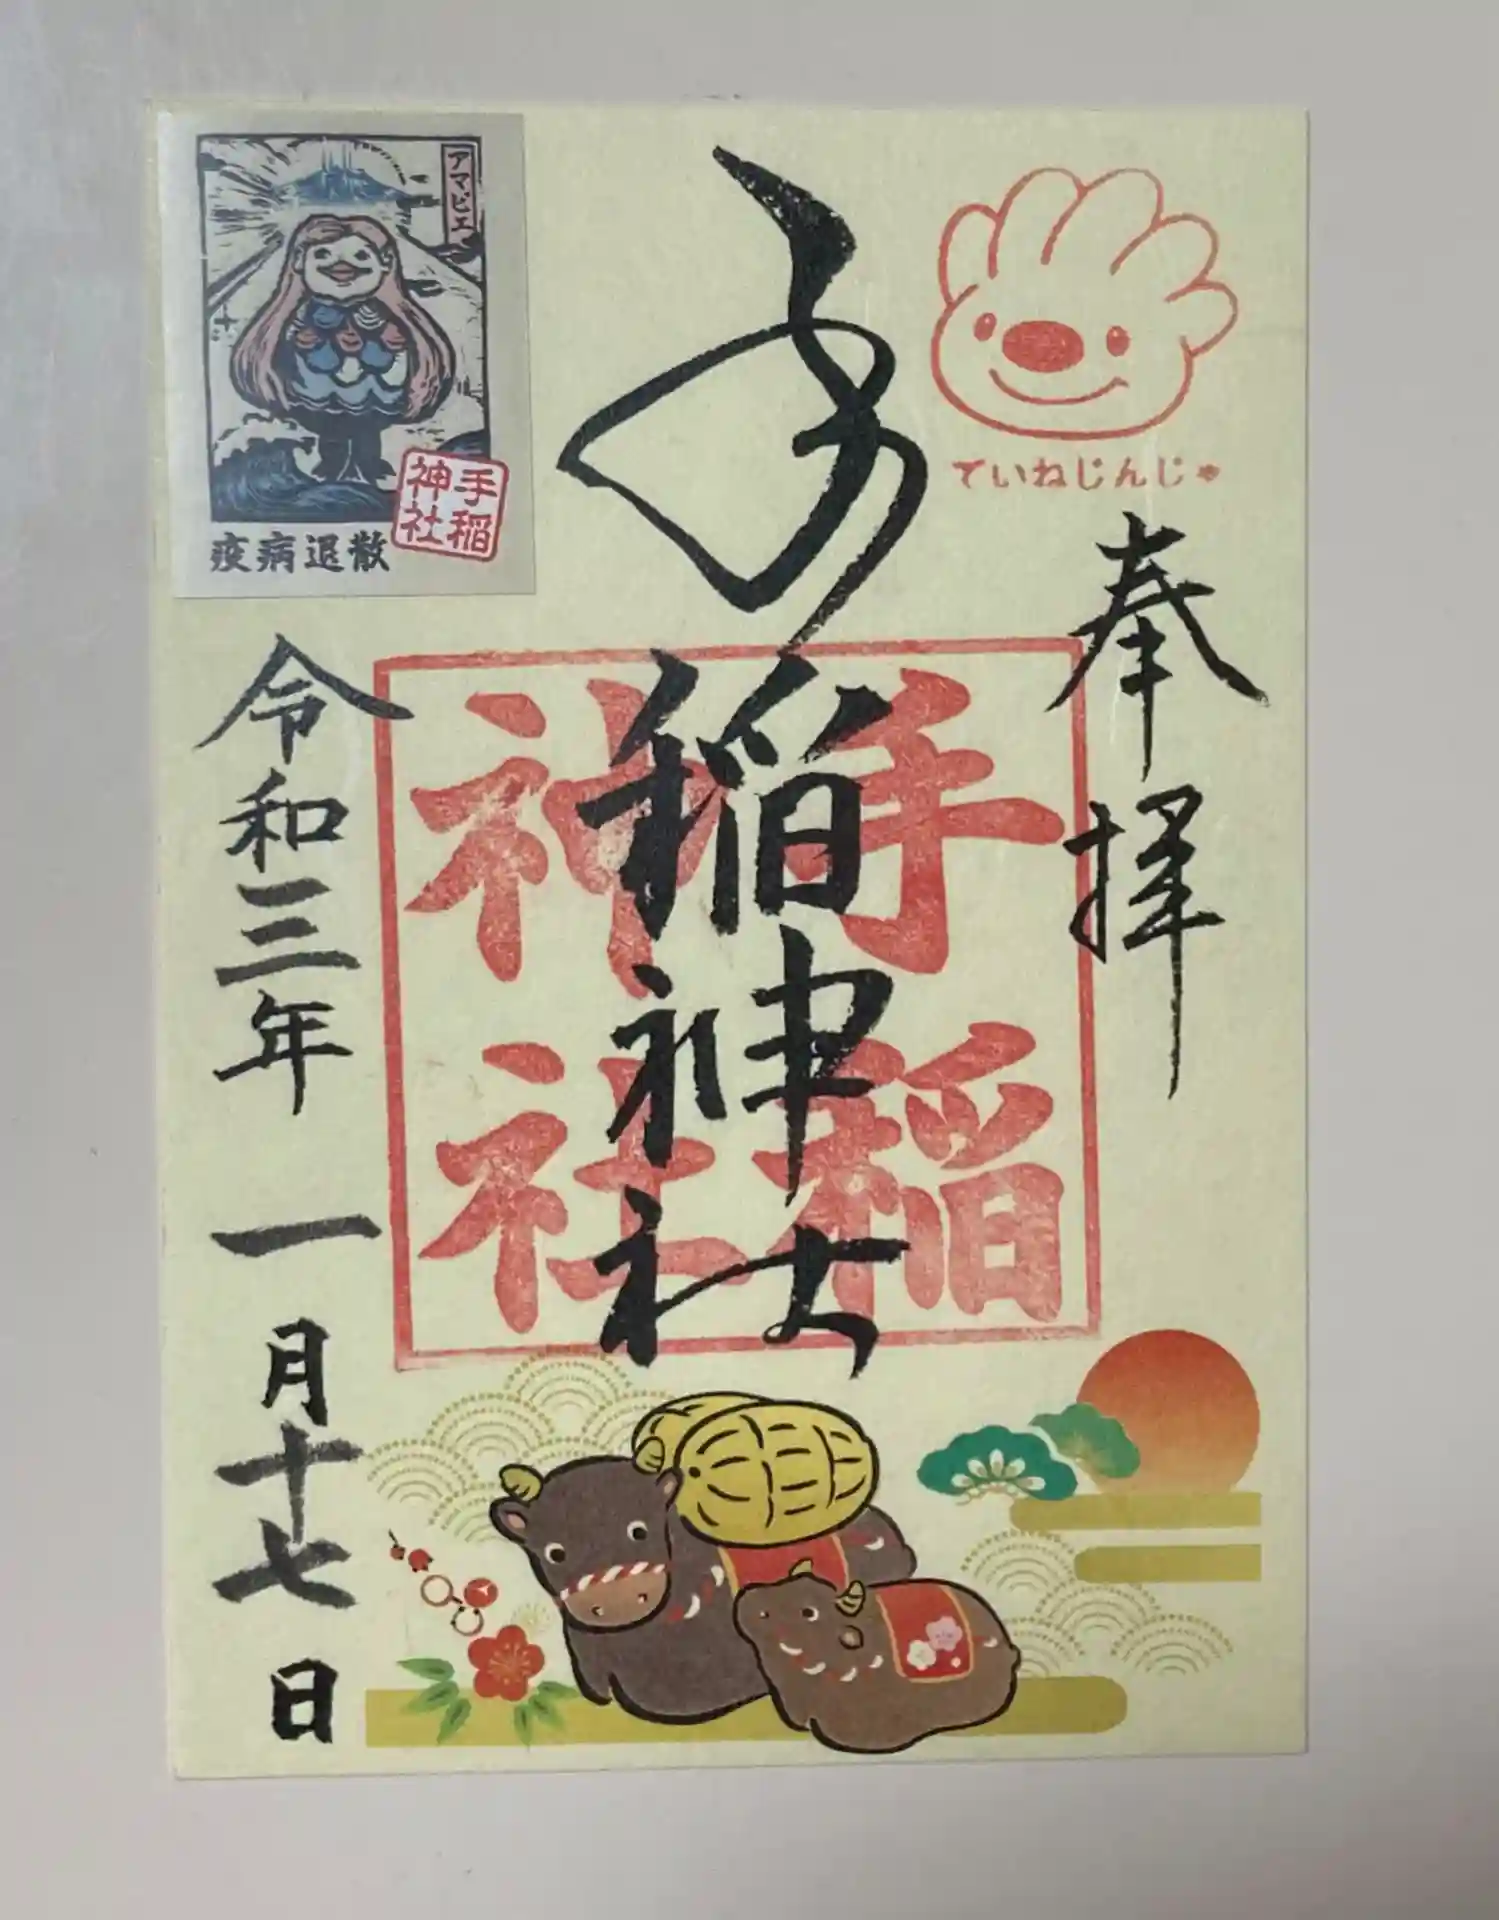 ていねじんじゃ
奉拝
手稲神社
手稲神社
令和三年 一月十七日
アマビエ
手稲神社
疫病退散